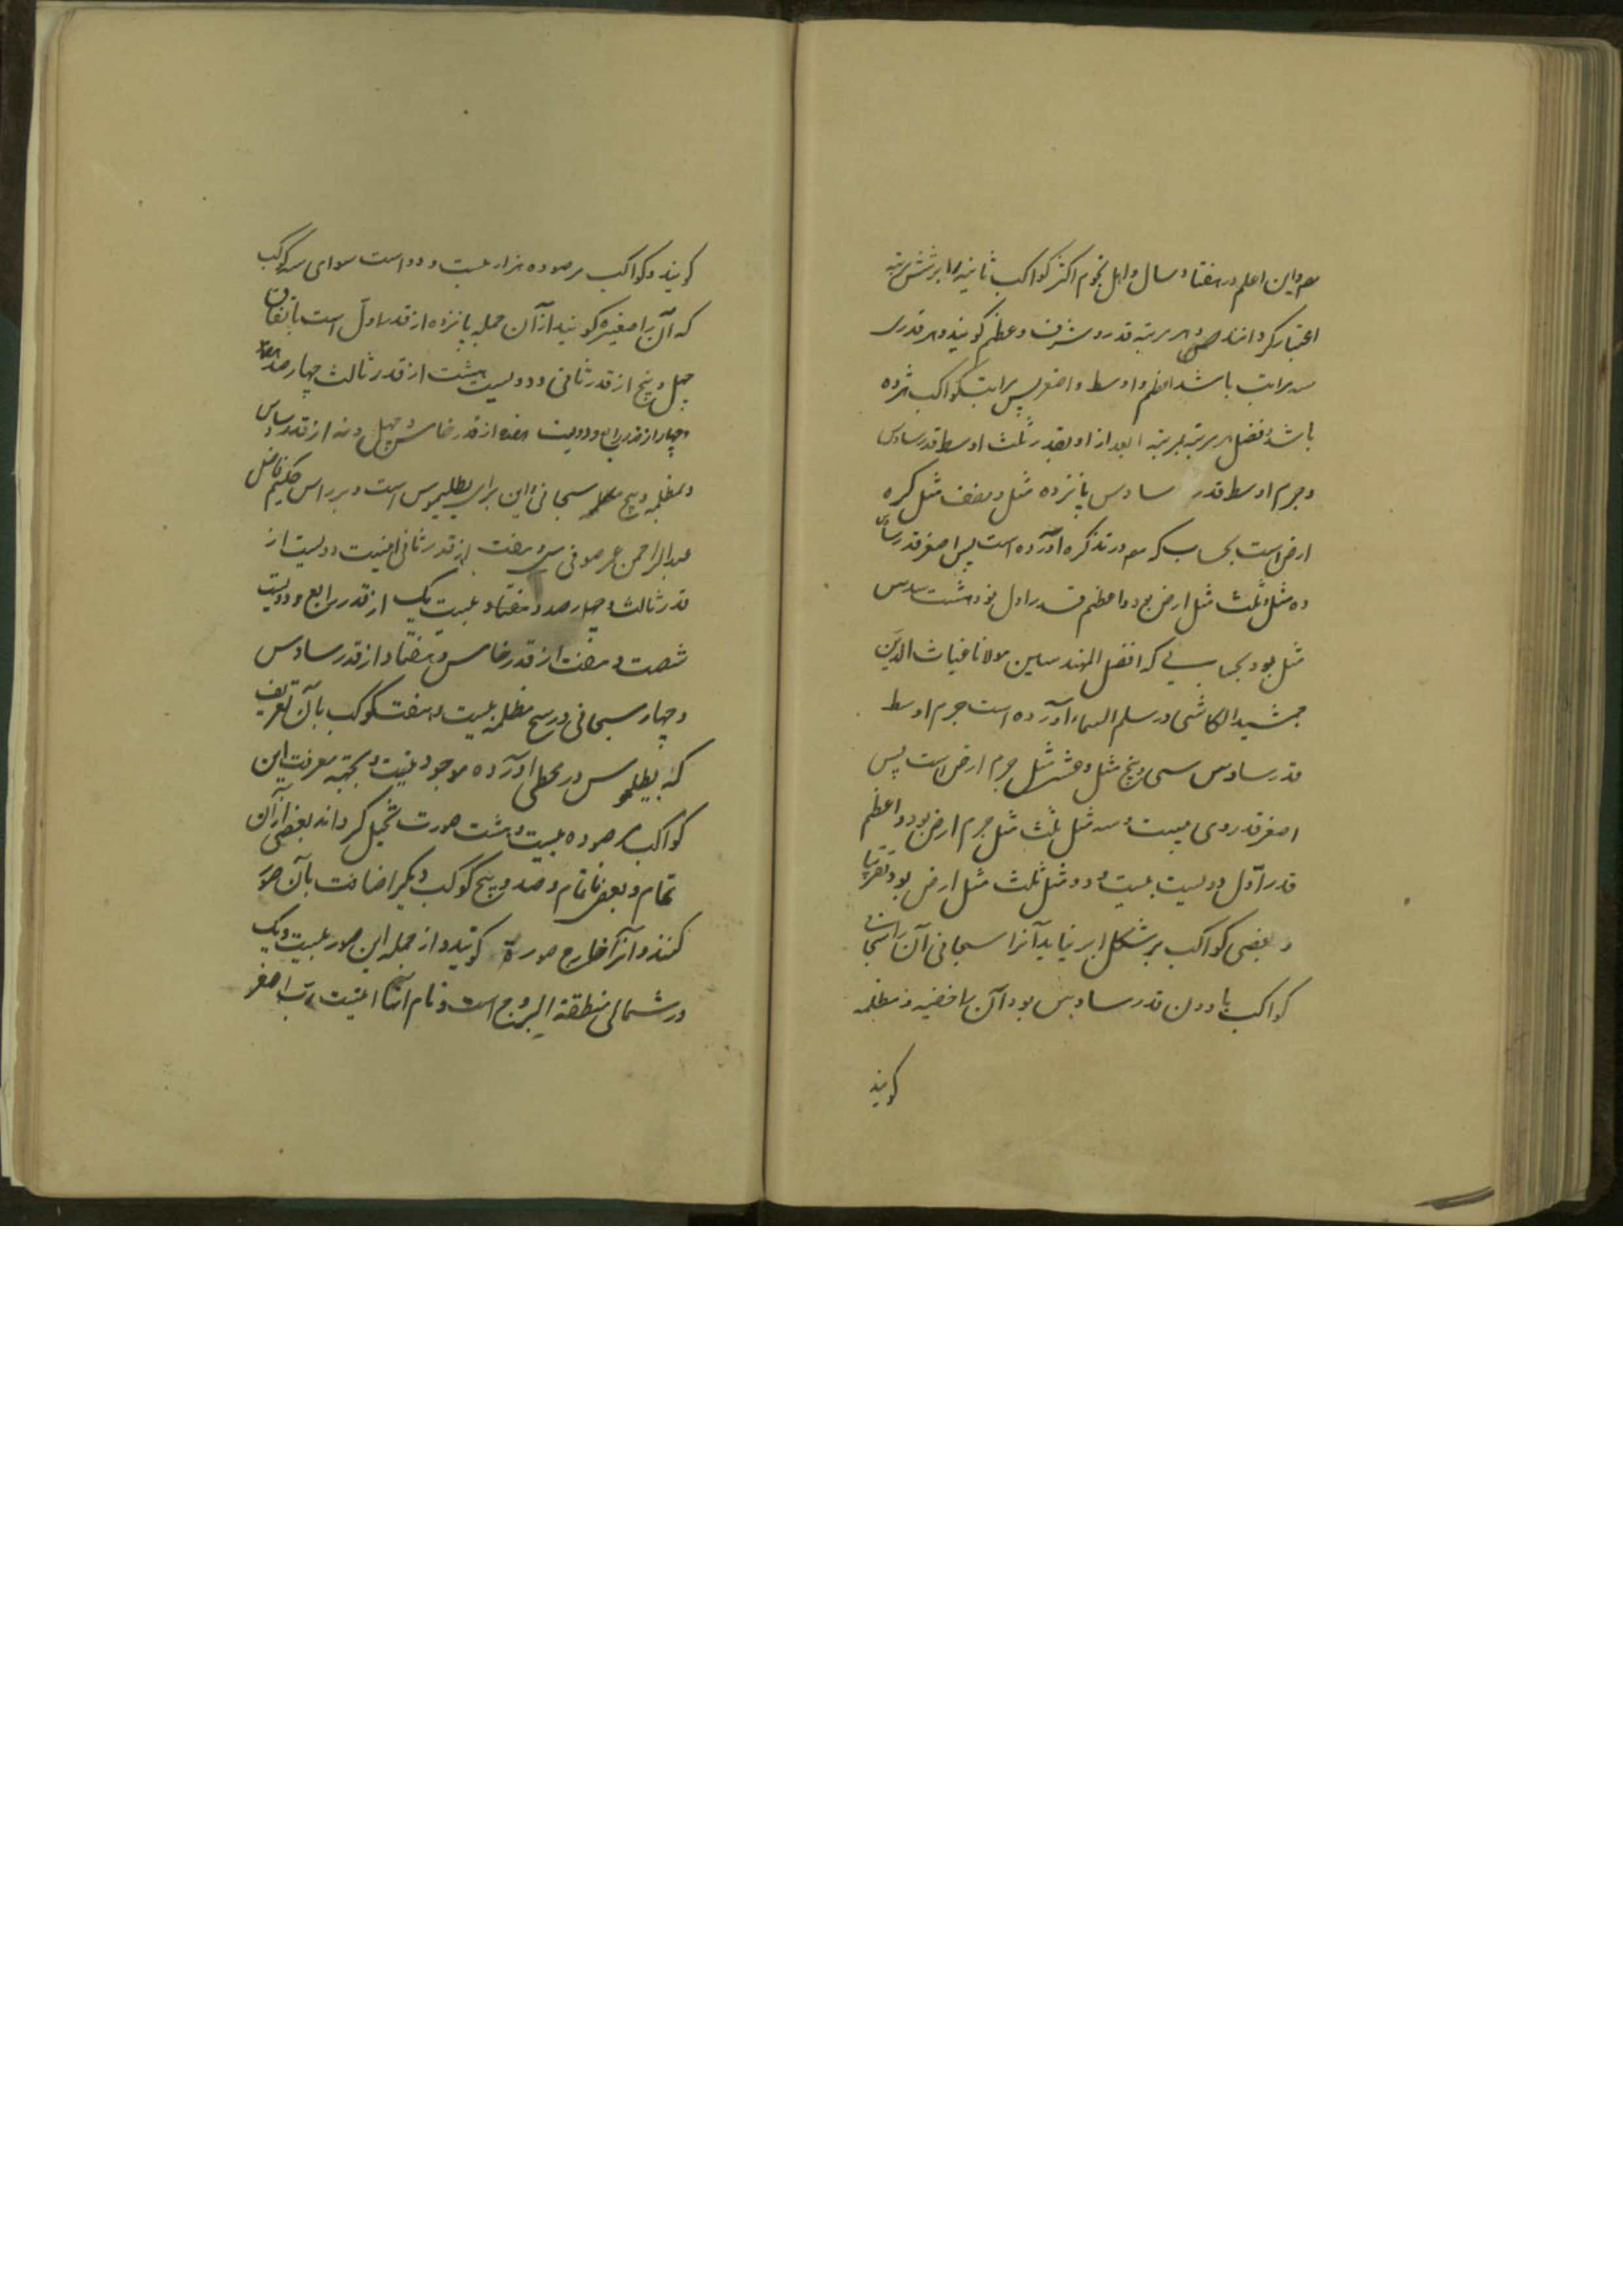 هم واین اعلم در هفتاد سال واهل نجوم اکثر کواکب ثابته را بر شش مرتبه
اعتبار کرده‌اند هر مرتبه قدر و شرف و عظم کویند و هر قدری
سه مراتب باشد اعظم و اوسط و اصغر پس مراتب کواکب هژده
باشد و فضل هر مرتبه بمرتبه بعد از او بقدر ثلث اوسط قدر سادس
وجرم اوسط قدر سادس پانزده مثل و نصف مثل کره
ارض است بحساب که هم در تذکره آورده است پس اصغر قدر سادس
ده مثل و ثلث مثل ارض بود و اعظم قدر اول نود هشت سدس
مثل بود بحسابی که افضل المهندسین مولانا غیاث الدین
جمشید الکاشی در سلم السماء آورده است جرم اوسط
قدر سادس سی و پنج مثل و عشر مثل جرم ارض است پس
اصغر قدر وی بیست و سه مثل ثلث مثل جرم ارض بود و اعظم
قدر اول دویست بیست و دو مثل ثلث مثل ارض بود تقریبا
و بعضی کواکب بر شکل ابر نماید آنرا سحابی آن را
کواکب با دون قدر سادس بود آن را خفیه و مظلمه
کویند
کویند و کواکب مرصوده هزار بیست و دو است سوای سه کوکب
که آن را صغیره کویند از آن جمله پانزده از قدر اول است باتفاق
چهل و پنج از قدر ثانی و دویست هشت از قدر ثالث چهارصد هفتاد
و چهار از قدر رابع و دویست هفده از قدر خامس و چهل و نه از قدر سادس
و مظلمه و پنج سحابی واین برای بطلیموس است و بر رای حکیم فاضل
عبدالرحمن عمر صوفی سی و هفت از قدر ثانی و دویست از
قدر ثالث و چهارصد و هفتاد و بیست یک از قدر رابع و دویست
شصت و هفت از قدر خامس و هفتاد از قدر سادس
و چهار سحابی و پنج مظلمه بیست و هفت کوکب با آن تعریف
که بطلیموس در مجسطی آورده موجود نیست و بجهة معرفت این
کواکب مرصوده بیست و هشت صورت تخیل کرده‌اند بعضی از آن
تمام و بعضی ناتمام و صد و پنج کوکب دیکر اضافت بآن صور
کنند و آنرا خارج صورة کویند و از جمله این صور بیست و یک
در شمالی منطقة البروج است و نام آنها اینست دب اصغر